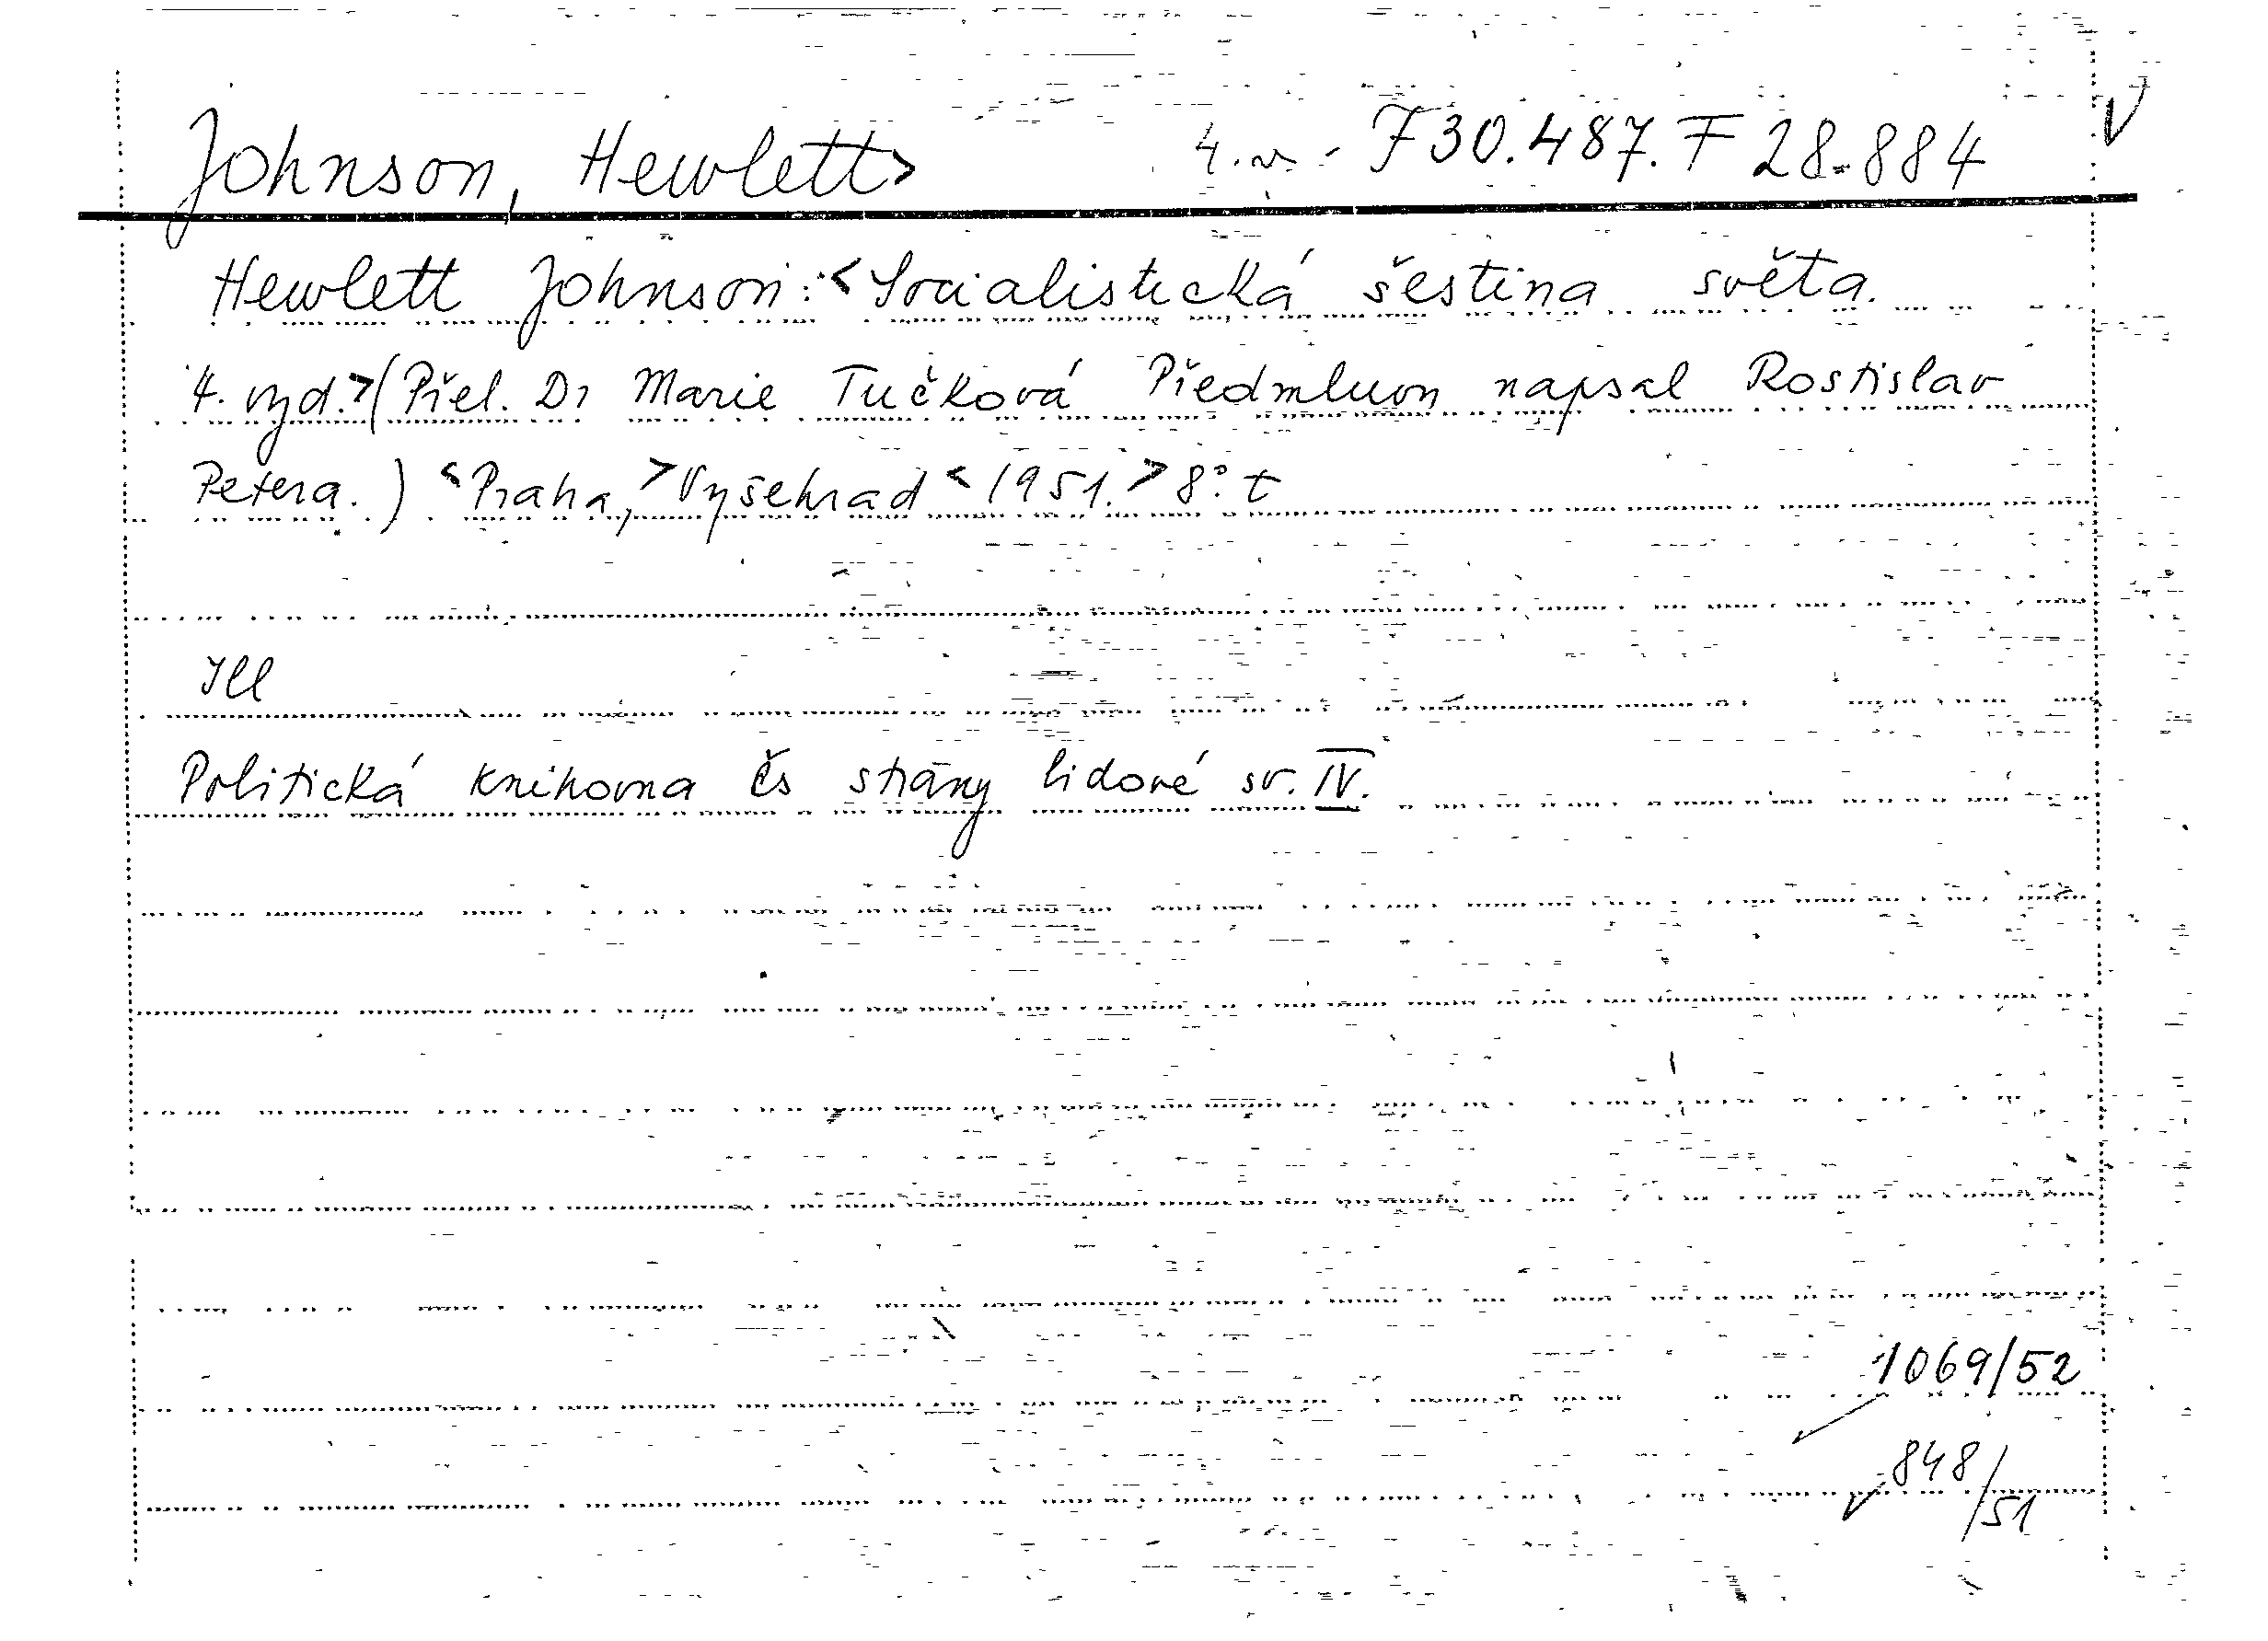 Johnson, Hewlett> 4.v. - F30.487. F 28.884 V
Hewlett Johnson:<Socialistická šestina světa.
4. vyd.>(Přel. Dr Marie Tučková Předmluvn napsal Rostislav
Petera.) <Praha,>Vyšehrad <1951.> 8°. t
Ill
Politická knihovna čs strany lidové sv. IV.
1069/52
848/51